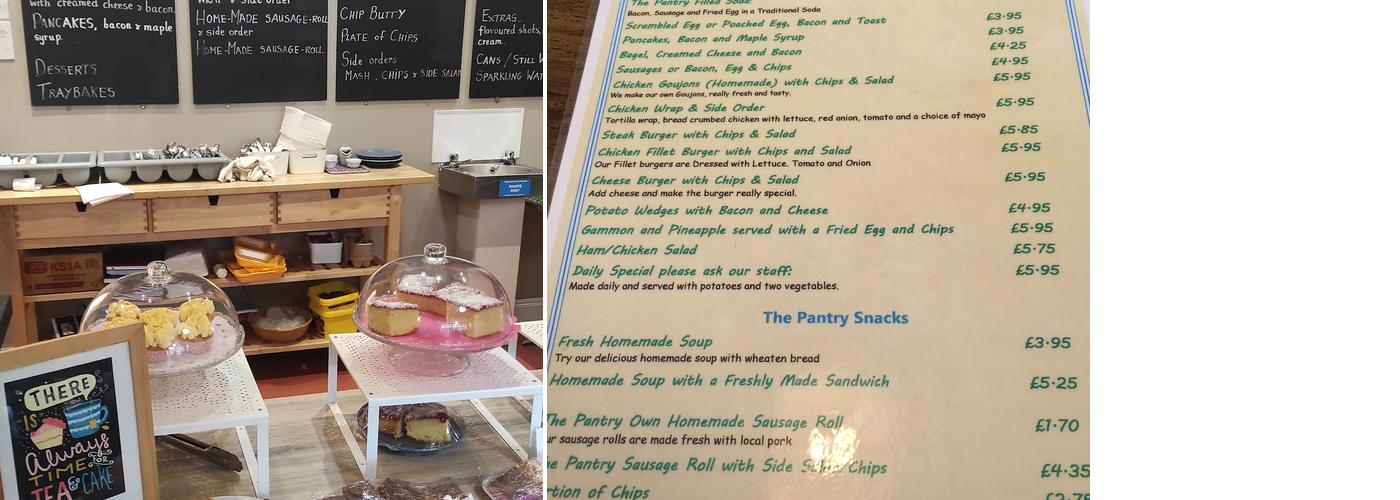 with creamed cheese & bacon
PANCAKES, bacon & maple
syrup.
DESSERTS
TRAYBAKES
side order
HOME-MADE SAUSAGE-ROLL
& side order
HOME-MADE SAUSAGE-ROLL
CHIP BUTTY
PLATE OF CHIPS
Side orders
MASH, CHIPS & SIDE SALAD
EXTRAS
flavoured shots,
cream.
CANS / STILL
SPARKLING
KS1A
HANDS
ONLY
THERE
IS
Always
TIME FOR
TEA & CAKE
The Pantry Filled Soda:
Bacon, Sausage and Fried Egg in a Traditional Soda £3.95
Scrambled Egg or Poached Egg, Bacon and Toast £3.95
Pancakes, Bacon and Maple Syrup £4.25
Bagel, Creamed Cheese and Bacon £4.95
Sausages or Bacon, Egg & Chips £5.95
Chicken Goujons (Homemade) with Chips & Salad
We make our own Goujons, really fresh and tasty. £5.95
Chicken Wrap & Side Order
Tortilla wrap, bread crumbed chicken with lettuce, red onion, tomato and a choice of mayo
Steak Burger with Chips & Salad £5.85
Chicken Fillet Burger with Chips and Salad £5.95
Our Fillet burgers are Dressed with Lettuce. Tomato and Onion
Cheese Burger with Chips & Salad £5.95
Add cheese and make the burger really special.
Potato Wedges with Bacon and Cheese £4.95
Gammon and Pineapple served with a Fried Egg and Chips £5.95
Ham/Chicken Salad £5.75
Daily Special please ask our staff: £5.95
Made daily and served with potatoes and two vegetables.
The Pantry Snacks
Fresh Homemade Soup £3.95
Try our delicious homemade soup with wheaten bread
Homemade Soup with a Freshly Made Sandwich £5.25
The Pantry Own Homemade Sausage Roll £1.70
ur sausage rolls are made fresh with local pork
he Pantry Sausage Roll with Side Chips £4.35
rtion of Chips £2.75